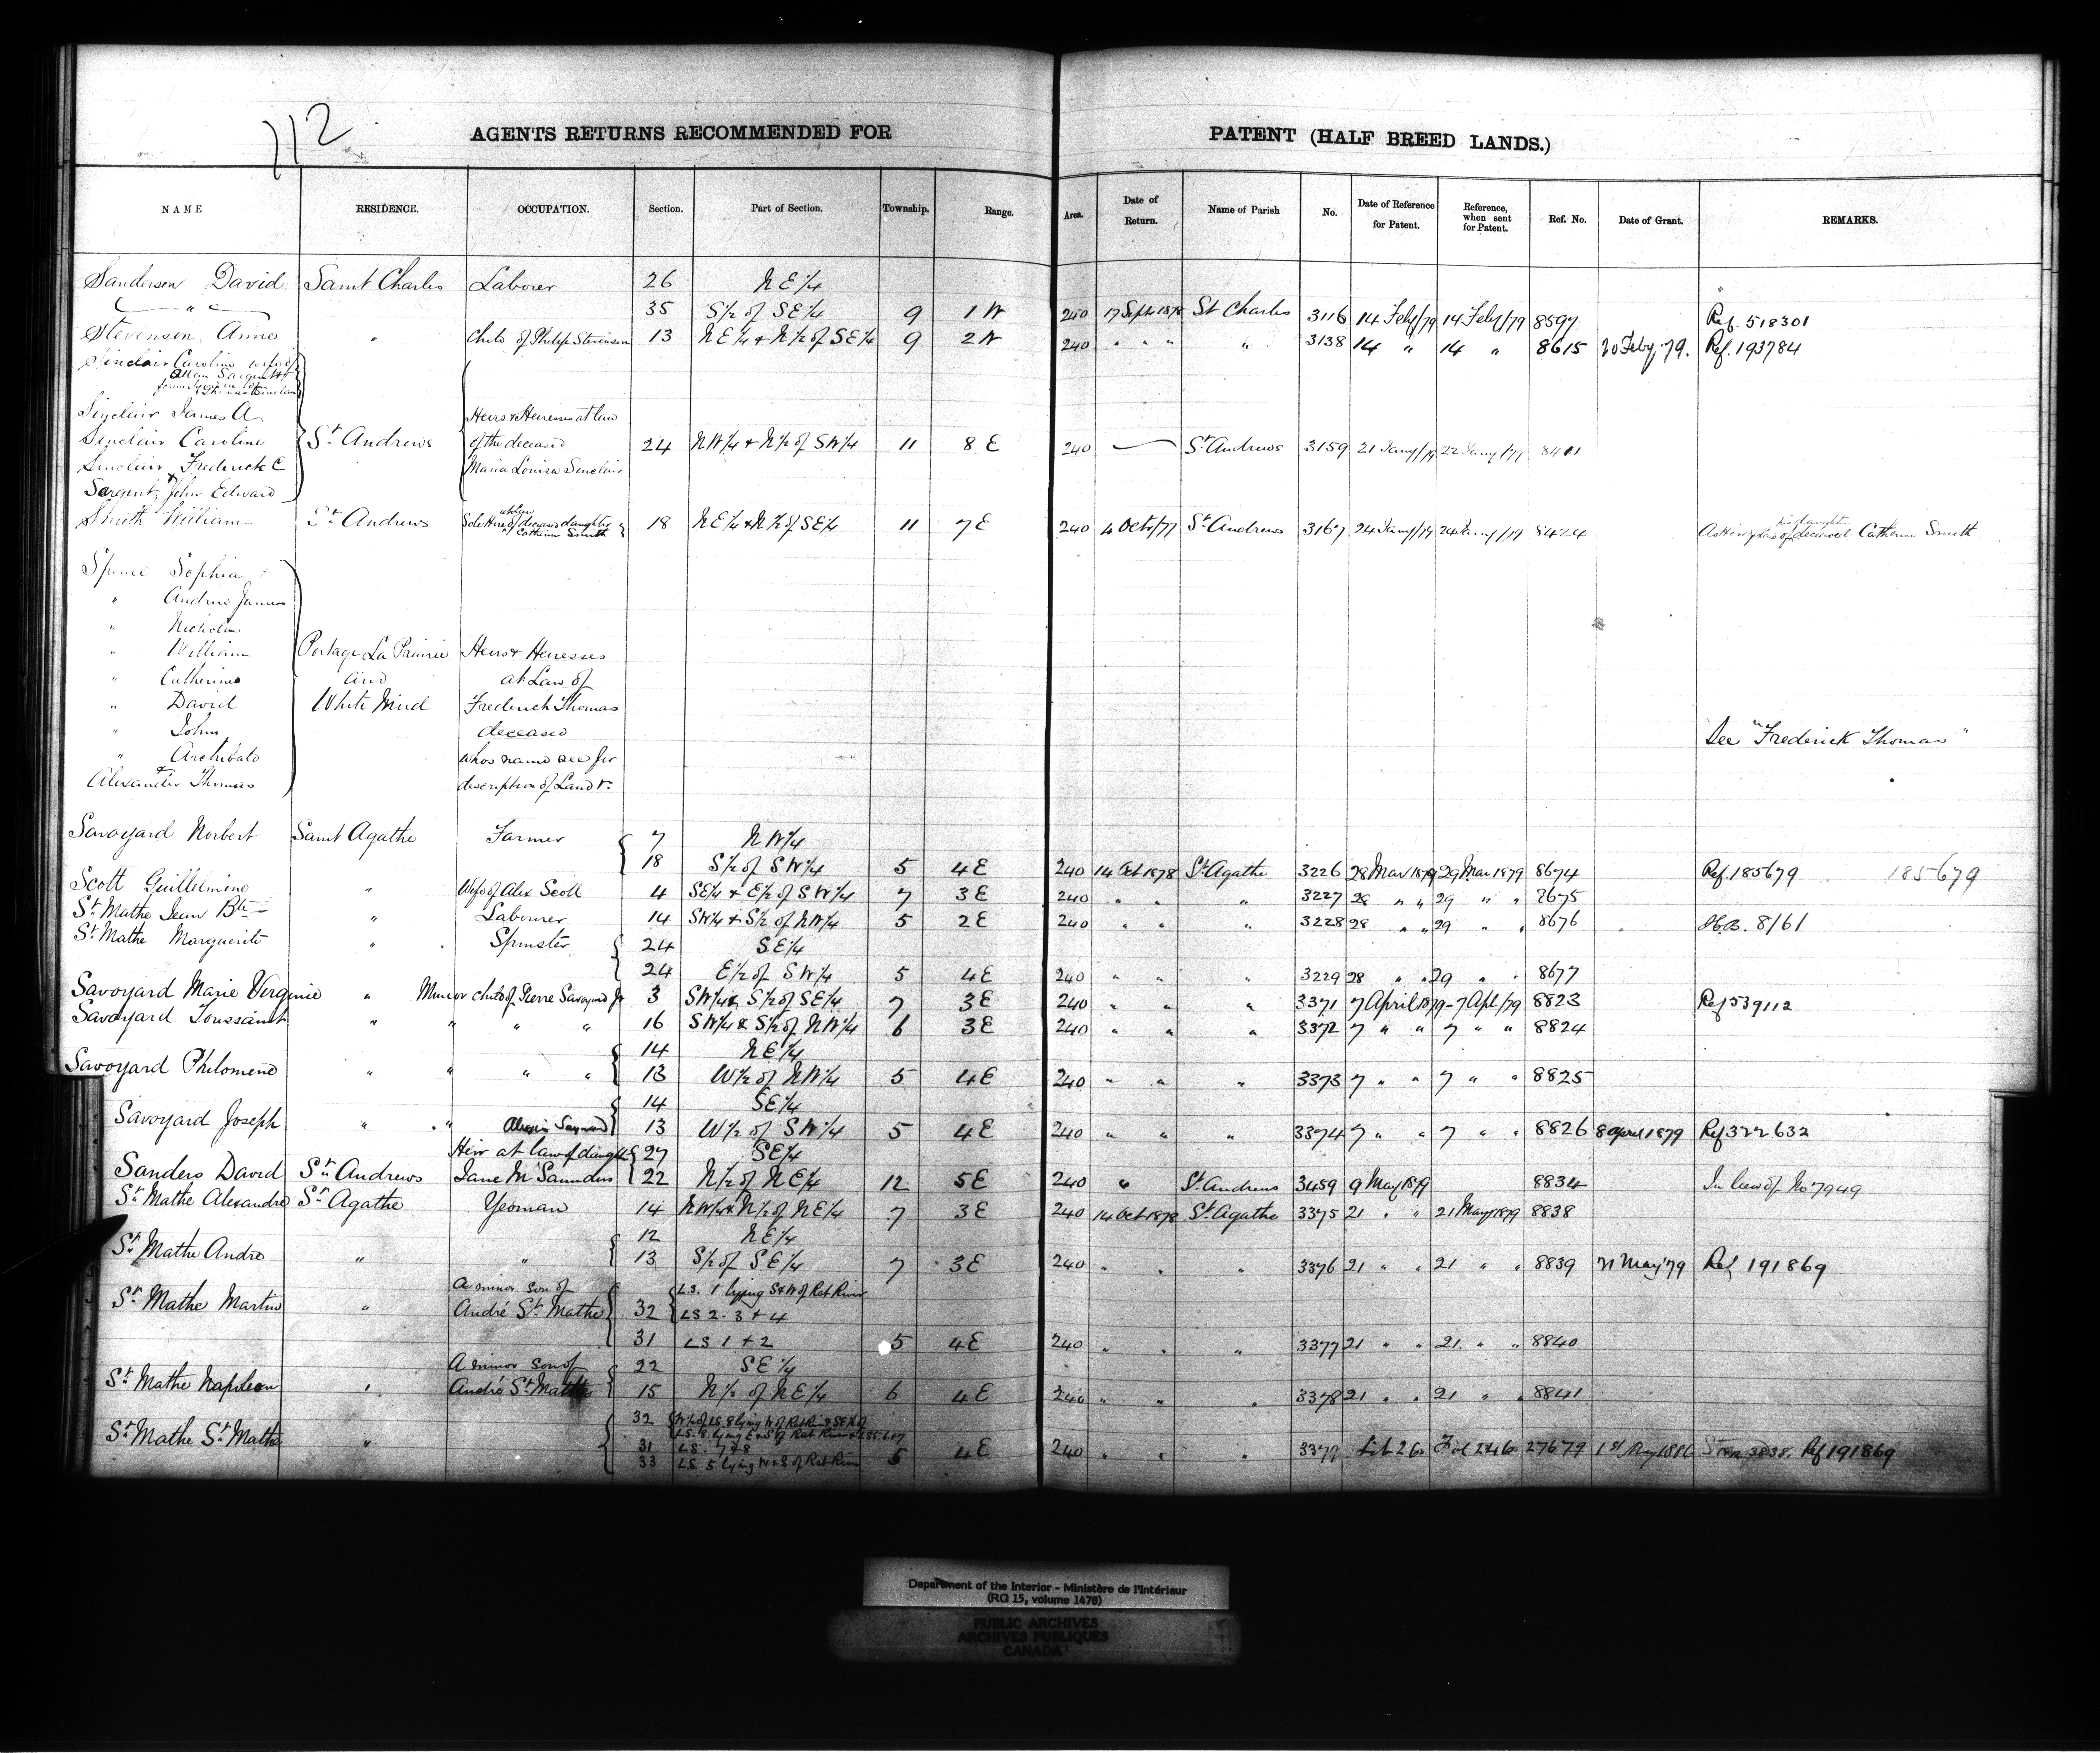 112
AGENTS RETURNS RECOMMENDED FOR PATENT (HALF BREED LANDS.)
NAME RESIDENCE. OCCUPATION. Section. Part of Section. Township. Range. Area. Date of Return. Name of Parish No. Date of Reference for Patent. Reference, when sent for Patent. Ref. No. Date of Grant. REMARKS.
Sanderson David Saint Charles Laborer 26 N E 1/4
" 35 S 1/2 of S E 1/4 9 1 W 240 17 Sept 1878 St Charles 3116 14 Feby/79 14 Feby/79 8597 Ref. 518301
Stevenson, Anne " Child of Philip Stevenson 13 N E 1/4 & N 1/2 of S E 1/4 9 2 W 240 " " " " 3138 14 " 14 " 8615 20 Feby '79. Ref. 193784
Sinclair Caroline wife of
Allan Sargent
Thomas Sinclair
Sinclair James A
Heirs & Heiresses at law
Sinclair Caroline St. Andrews of the deceased 24 N W 1/4 & N 1/2 of S W 1/4 11 8 E 240 St. Andrews 3159 21 Jany/79 22 Jany/79 8401
Sinclair Frederick E Maria Louisa Sinclair
&
Sargent, John Edward
Smith William St. Andrews Sole Heir at law of deceased daughter Catherine Smith 18 N E 1/4 & N 1/2 of S E 1/4 11 7 E 240 4 Oct/77 St. Andrews 3167 24 Jany/79 24 Jany/79 8424 deceased Catherine Smith
Spence Sophia
" Andrew James
" Nicholas
" William Portage La Prairie Heirs & Heiresses
" Catherine and at Law of
" David White Mud Frederick Thomas
" John deceased See "Frederick Thomas"
" Archibald whos name see for
&
Alexander Thomas description of Land &c.
Savoyard Norbert Saint Agathe Farmer 7 N W 1/4
18 S 1/2 of S W 1/4 5 4 E 240 14 Oct 1878 St. Agathe 3226 28 Mar 1879 29 Mar 1879 8674 Ref. 185679 185679
Scott Guillelmine " Wife of Alex Scott 4 S E 1/4 & E 1/2 of S W 1/4 7 3 E 240 " " " 3227 28 " " 29 " " 8675
St. Mathe Jean Bte " Labourer 14 S W 1/4 & S 1/2 of N W 1/4 5 2 E 240 " " " 3228 28 " " 29 " " 8676 H.B. 8161
St. Mathe Marguerite " Spinster 24 S E 1/4
24 E 1/2 of S W 1/4 5 4 E 240 " " " 3229 28 " " 29 " " 8677
Savoyard Marie Virginie " Minor child of Pierre Savoyard Jr 3 S W 1/4 & S 1/2 of S E 1/4 7 3 E 240 " " " 3371 7 April 1879 7 Apl/79 8823 Ref 539112
Savoyard Toussaint " " " " 16 S W 1/4 & S 1/2 of N W 1/4 6 3 E 240 " " " 3372 7 " " 7 " " 8824
14 N E 1/4
Savoyard Philomene " " " " 13 W 1/2 of N W 1/4 5 4 E 240 " " " 3373 7 " " 7 " " 8825
14 S E 1/4
Savoyard Joseph " " 13 W 1/2 of S W 1/4 5 4 E 240 " " " 3374 7 " " 7 " " 8826 8 April 1879 Ref 322632
Heir at law of daughter 27 S E 1/4
Sanders David St. Andrews Jane M Saunders 22 N 1/2 of N E 1/4 12 5 E 240 " St. Andrews 3459 9 May 1879 8834 In lieu of No 7949
St. Mathe Alexandre St. Agathe Yeoman 14 N W 1/4 & N 1/2 of N E 1/4 7 3 E 240 14 Oct 1878 St. Agathe 3375 21 " " 21 May 1879 8838
12 N E 1/4
St. Mathe Andre " " 13 S 1/2 of S E 1/4 7 3 E 240 " " " 3376 21 " " 21 " " 8839 21 May '79 Ref 191869
A minor son of L.S. 1 lying S & W of Rat River
St. Mathe Martin " André St. Mathe 32 L S 2. 3 & 4
31 L S 1 & 2 5 4 E 240 " " " 3377 21 " " 21 " " 8840
A minor son of 22 S E 1/4
St. Mathe Napoleon " André St. Mathe 15 N 1/2 of N E 1/4 6 4 E 240 " " " 3378 21 " " 21 " " 8841
32 W 1/2 of L.S. 8 lying W of Rat River & S E 1/4 of
L.S. 8 lying E & S of Rat River
St. Mathe St. Mathe " 31 L.S. 7 & 8 5 4 E 240 " " " 3379 Lib 26 Fol 246 27679 1st May 1886 Ref 191869
33 L.S. 5 lying W & S of Rat River
Department of the Interior - Ministère de l'Intérieur
(RG 15, volume 1478)
PUBLIC ARCHIVES
ARCHIVES PUBLIQUES
CANADA